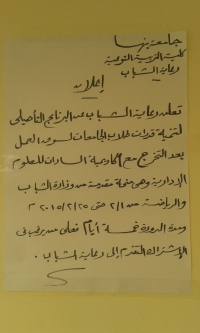 جامعة بنها
كلية التربية النوعية
رعاية الشباب
إعلان
تعلن رعاية الشباب عن البرنامج التأهيلى
لتنمية قدرات طلاب الجامعات لسوق العمل
بعد التخرج مع اكاديمية السادات للعلوم
الإدارية وهى منحة مقدمة من وزارة الشباب
والرياضة من ٢/١ حتى ٢٠١٥/٢/٢٥ م
ومدة الدورة خمسة أيام فعلى من يرغب فى
الإشتراك التقدم إلى رعاية الشباب .